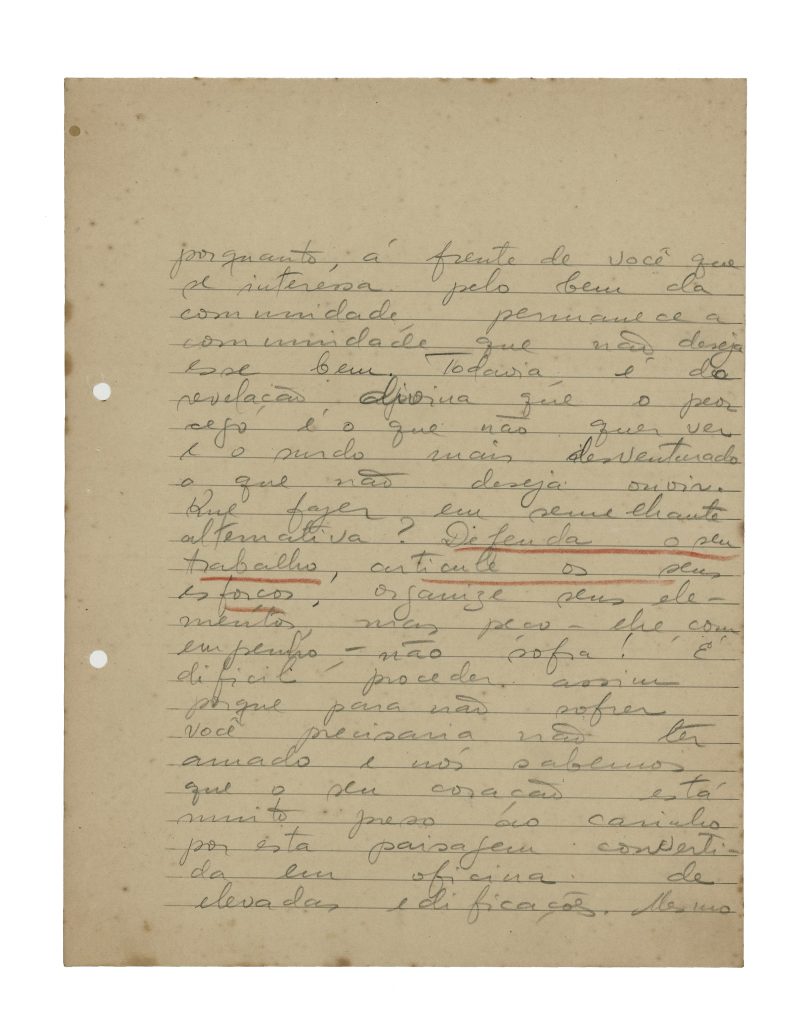 porquanto, á frente de você que
se interéssa pelo bem da
comunidade, permanece a
comunidade que não deseja
esse bem. Todavia é da
revelação divina que o peor
cego é o que não quer ver
e o surdo mais desventurado
o que não deseja ouvir.
Que fazer em semelhante
alternativa? Defenda o seu
trabalho, articule os seus
esforços, organize seus ele-
mentos, mas peço-lhe com
empenho - não sofra! É
dificil proceder assim
porque para não sofrer
você precisaria não ter
amado e nós sabemos
que o seu coração está
muito preso ao carinho
por esta paisagem converti-
da em oficina de
elevadas edificações. Mesmo